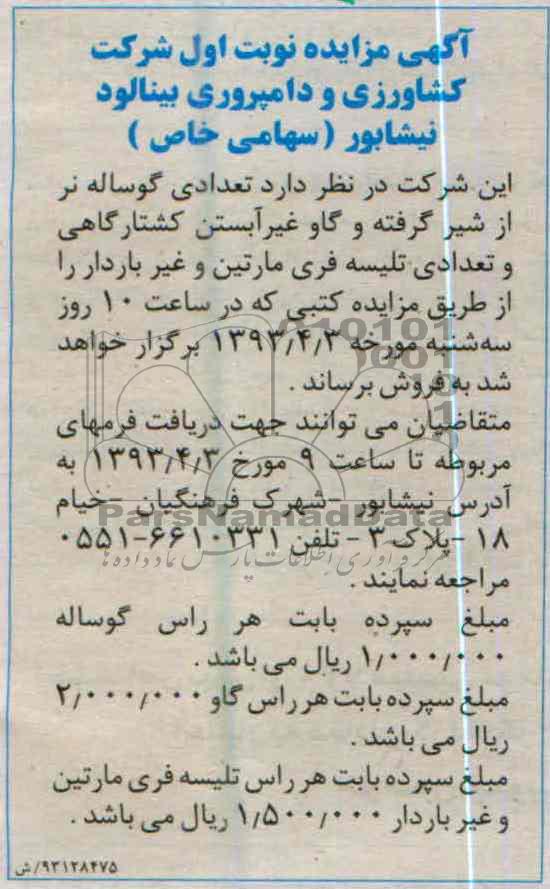 آگهی مزایده نوبت اول شرکت
کشاورزی و دامپروری بینالود
نیشابور (سهامی خاص)
این شرکت در نظر دارد تعدادی گوساله نر
از شیر گرفته و گاو غیرآبستن کشتارگاهی
و تعدادی تلیسه فری مارتین و غیر باردار را
از طریق مزایده کتبی که در ساعت ۱۰ روز
سه‌شنبه مورخه ۱۳۹۳/۴/۳ برگزار خواهد
شد به فروش برساند .
متقاضیان می توانند جهت دریافت فرمهای
مربوطه تا ساعت ۹ مورخ ۱۳۹۳/۴/۳ به
آدرس نیشابور -شهرک فرهنگیان -خیام
۱۸ -پلاک ۳ - تلفن ۶۶۱۰۳۳۱-۰۵۵۱
مراجعه نمایند .
مبلغ سپرده بابت هر راس گوساله
۱/۰۰۰/۰۰۰ ریال می باشد .
مبلغ سپرده بابت هر راس گاو ۲/۰۰۰/۰۰۰
ریال می باشد .
مبلغ سپرده بابت هر راس تلیسه فری مارتین
و غیر باردار ۱/۵۰۰/۰۰۰ ریال می باشد .
۹۳۱۲۸۴۷۵/ش
ParsNamadData